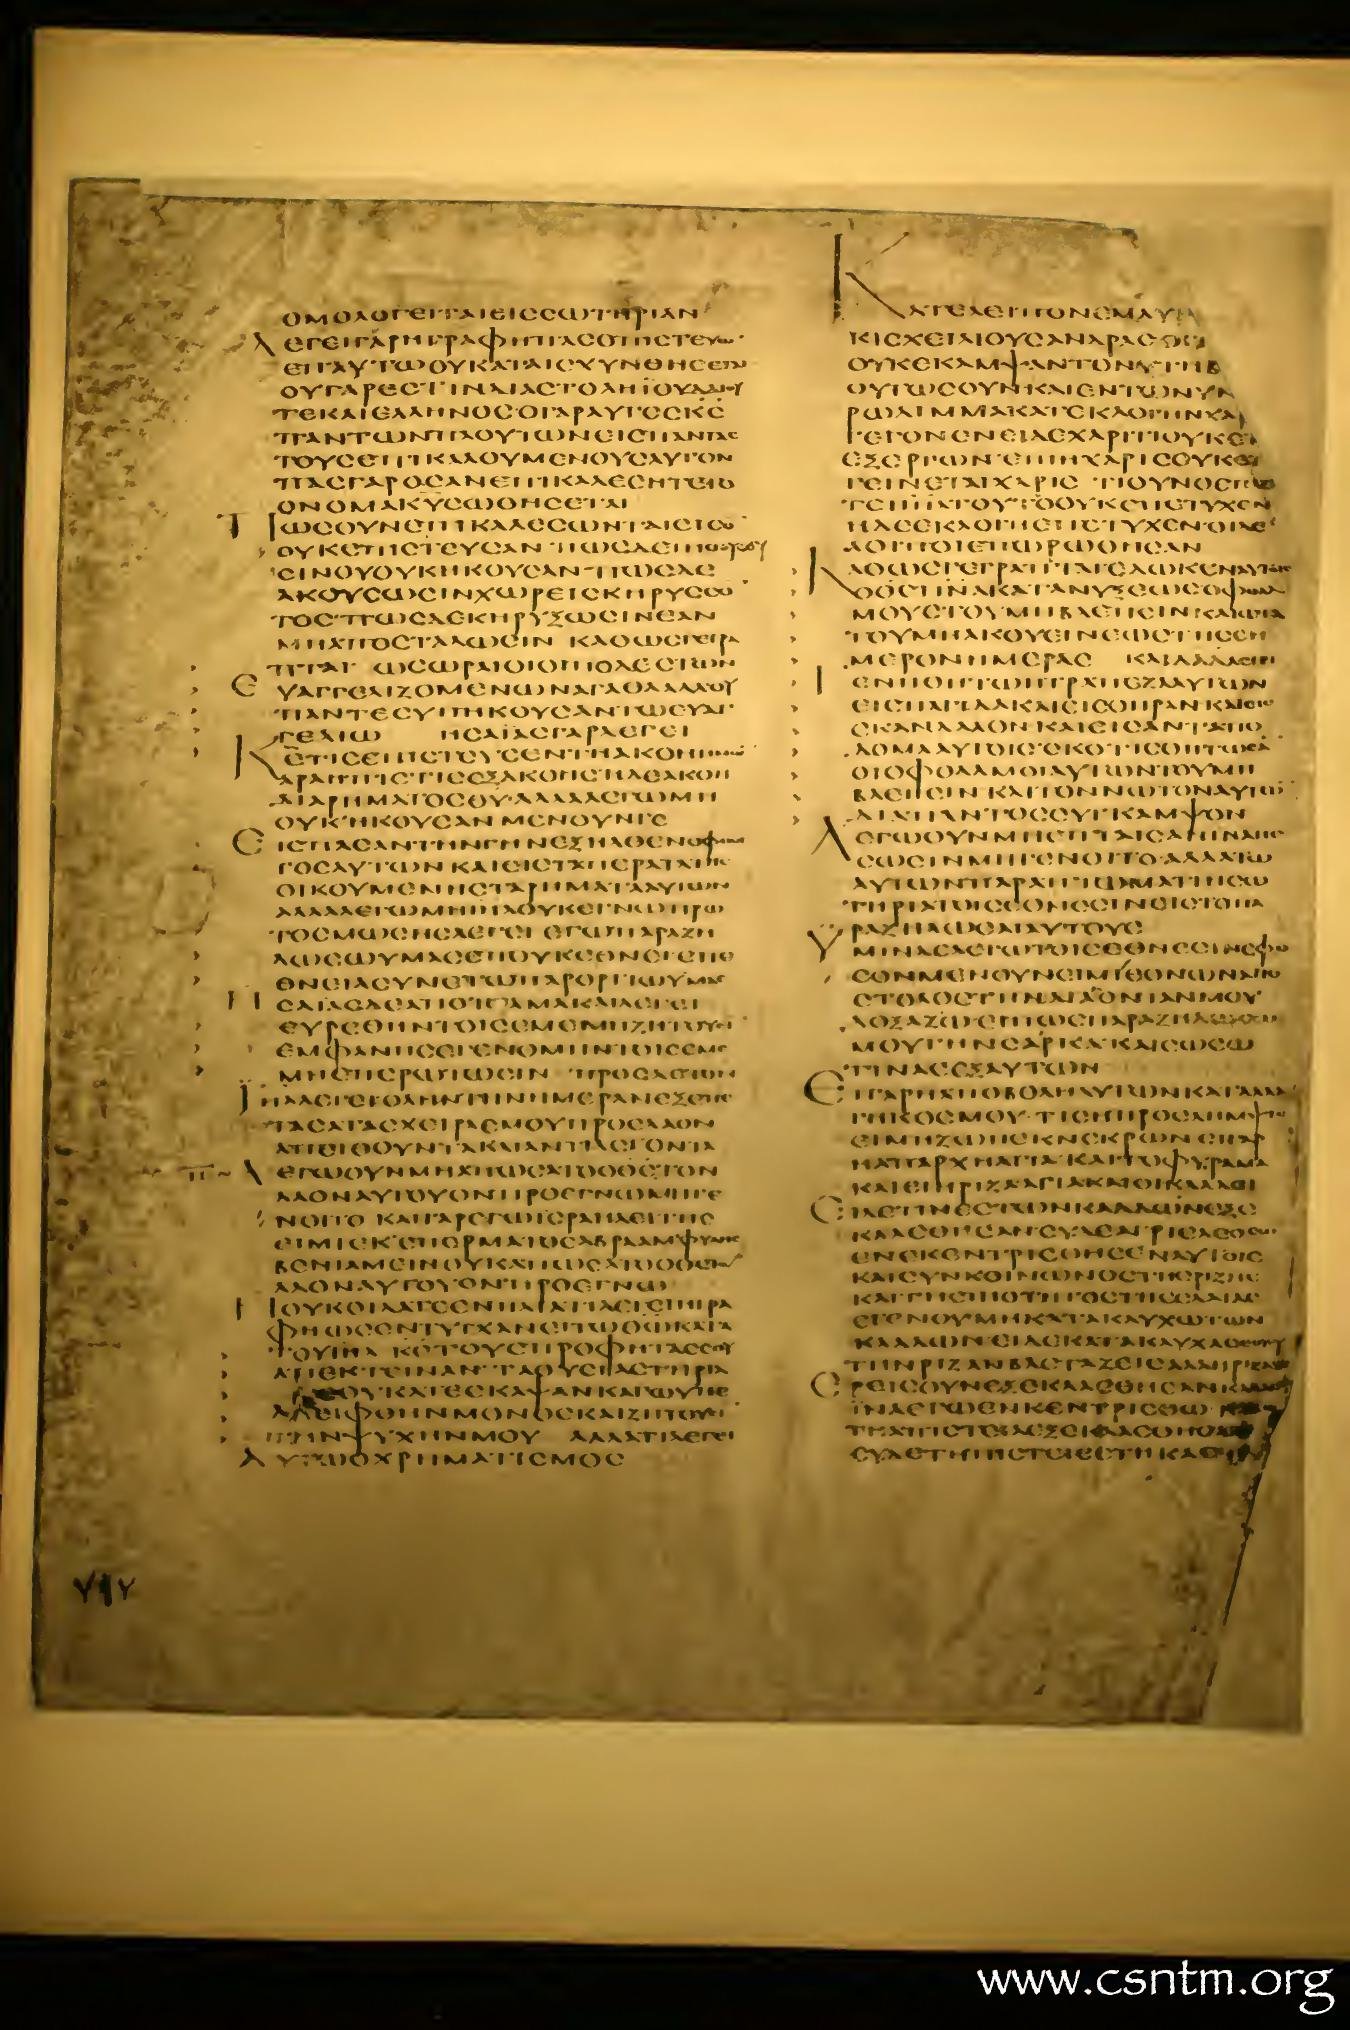 ΟΜΟΛΟΓΕΙΤΑΙΕΙΣΣΩΤΗΡΙΑΝ
ΛΕΓΕΙΓΑΡΗΓΡΑΦΗΠΑΣΟΠΙΣΤΕΥΩ
ΕΠΑΥΤΩΟΥΚΑΤΑΙΣΧΥΝΘΗΣΕΤΑΙ
ΟΥΓΑΡΕΣΤΙΝΔΙΑΣΤΟΛΗΙΟΥΔΑΙΟΥ
ΤΕΚΑΙΕΛΛΗΝΟΣΟΓΑΡΑΥΤΟΣΚΣ
ΠΑΝΤΩΝΠΛΟΥΤΩΝΕΙΣΠΑΝΤΑΣ
ΤΟΥΣΕΠΙΚΑΛΟΥΜΕΝΟΥΣΑΥΤΟΝ
ΠΑΣΓΑΡΟΣΑΝΕΠΙΚΑΛΕΣΗΤΕΤΟ
ΟΝΟΜΑΚΥΣΩΘΗΣΕΤΑΙ
ΠΩΣΟΥΝΕΠΙΚΑΛΕΣΩΝΤΑΙΕΙΣΟ
ΟΥΚΕΠΙΣΤΕΥΣΑΝ ΠΩΣΔΕΠΙΣΤΕΥΣΟΥ
ΣΙΝΟΥΟΥΚΗΚΟΥΣΑΝ ΠΩΣΔΕ
ΑΚΟΥΣΩΣΙΝΧΩΡΕΙΣΚΗΡΥΣΣΟ
ΤΟΣΠΩΣΔΕΚΗΡΥΞΩΣΙΝΕΑΝ
ΜΗΑΠΟΣΤΑΛΩΣΙΝ ΚΑΘΩΣΓΕΓΡΑ
ΠΤΑΙ ΩΣΩΡΑΙΟΙΟΙΠΟΔΕΣΤΩΝ
ΕΥΑΓΓΕΛΙΖΟΜΕΝΩΝΑΓΑΘΑΑΛΛΟΥ
ΠΑΝΤΕΣΥΠΗΚΟΥΣΑΝΤΩΕΥΑΓ
ΓΕΛΙΩ ΗΣΑΙΑΣΓΑΡΛΕΓΕΙ
ΚΕΤΙΣΕΠΙΣΤΕΥΣΕΝΤΗΑΚΟΗΗΜΩ
ΑΡΑΗΠΙΣΤΙΣΕΞΑΚΟΗΣΗΔΕΑΚΟΗ
ΔΙΑΡΗΜΑΤΟΣΘΥ ΑΛΛΑΛΕΓΩΜΗ
ΟΥΚΗΚΟΥΣΑΝ ΜΕΝΟΥΝΓΕ
ΕΙΣΠΑΣΑΝΤΗΝΓΗΝΕΞΗΛΘΕΝΟΦΘΟΓ
ΓΟΣΑΥΤΩΝ ΚΑΙΕΙΣΤΑΠΕΡΑΤΑΤΗΣ
ΟΙΚΟΥΜΕΝΗΣΤΑΡΗΜΑΤΑΑΥΤΩΝ
ΑΛΛΑΛΕΓΩΜΗΙΗΛΟΥΚΕΓΝΩΠΡΩ
ΤΟΣΜΩΣΗΣΛΕΓΕΙ ΕΓΩΠΑΡΑΖΗ
ΛΩΣΩΥΜΑΣΕΠΟΥΚΕΘΝΕΙΕΠΙΕ
ΘΝΕΙΑΣΥΝΕΤΩΠΑΡΟΡΓΙΩΥΜΑΣ
ΗΣΑΙΑΣΔΕΑΠΟΤΟΛΜΑΚΑΙΛΕΓΕΙ
ΕΥΡΕΘΗΝΤΟΙΣΕΜΕΜΗΖΗΤΟΥΣΙ
ΕΜΦΑΝΗΣΕΓΕΝΟΜΗΝΤΟΙΣΕΜΕ
ΜΗΕΠΕΡΩΤΩΣΙΝ ΠΡΟΣΔΕΤΟΝ
ΙΗΛΛΕΓΕΙΟΛΗΝΤΗΝΗΜΕΡΑΝΕΞΕΠΕ
ΤΑΣΑΤΑΣΧΕΙΡΑΣΜΟΥΠΡΟΣΛΑΟΝ
ΑΠΙΘΟΥΝΤΑΚΑΙΑΝΤΙΛΕΓΟΝΤΑ
ΛΕΓΩΟΥΝΜΗΑΠΩΣΑΤΟΟΘΣΤΟΝ
ΛΑΟΝΑΥΤΟΥΟΝΠΡΟΕΓΝΩΜΗΓΕ
ΝΟΙΤΟ ΚΑΙΓΑΡΕΓΩΙΣΡΑΗΛΕΙΤΗΣ
ΕΙΜΙΕΚΣΠΕΡΜΑΤΟΣΑΒΡΑΑΜΦΥΛΗΣ
ΒΕΝΙΑΜΕΙΝΟΥΚΑΠΩΣΑΤΟΟΘΣΤΟΝ
ΛΑΟΝΑΥΤΟΥΟΝΠΡΟΕΓΝΩ
ΗΟΥΚΟΙΔΑΤΕΕΝΗΛΙΑΤΙΛΕΓΕΙΗΓΡΑ
ΦΗΩΣΕΝΤΥΓΧΑΝΕΙΤΩΘΩΚΑΤΑ
ΤΟΥΙΗΛ ΚΕΤΟΥΣΠΡΟΦΗΤΑΣΣΟΥ
ΑΠΕΚΤΕΙΝΑΝ ΤΑΘΥΣΙΑΣΤΗΡΙΑ
ΣΟΥΚΑΤΕΣΚΑΨΑΝΚΑΓΩΥΠΕ
ΛΕΙΦΘΗΝΜΟΝΟΣΚΑΙΖΗΤΟΥΣΙ
ΤΗΝΨΥΧΗΝΜΟΥ ΑΛΛΑΤΙΛΕΓΕΙ
ΑΥΤΩΟΧΡΗΜΑΤΙΣΜΟΣ
ΚΑΤΕΛΕΙΠΟΝΕΜΑΥΤ
ΚΙΣΧΕΙΛΙΟΥΣΑΝΔΡΑΣΟΙ
ΟΥΚΕΚΑΜΨΑΝΓΟΝΥΤΗΒ
ΟΥΤΩΣΟΥΝΚΑΙΕΝΤΩΝΥΝ
ΡΩΛΙΜΜΑΚΑΤΕΚΛΟΓΗΝΧΑ
ΓΕΓΟΝΕΝΕΙΔΕΧΑΡΙΤΙΟΥΚΕ
ΕΞΕΡΓΩΝΕΠΙΗΧΑΡΙΣΟΥΚΕ
ΓΕΙΝΕΤΑΙΧΑΡΙΣ ΤΙΟΥΝΟΕΠΙ
ΖΗΤΕΙΙΗΛΤΟΥΤΟΟΥΚΕΠΕΤΥΧΕΝ
ΗΔΕΕΚΛΟΓΗΕΠΕΤΥΧΕΝΟΙΔΕ
ΛΟΙΠΟΙΕΠΩΡΩΘΗΣΑΝ
ΚΑΘΩΣΓΕΓΡΑΠΤΑΙΕΔΩΚΕΝΑΥΤΟΙΣ
ΟΘΣΠΝΑΚΑΤΑΝΥΞΕΩΣΟΦΘΑΛ
ΜΟΥΣΤΟΥΜΗΒΛΕΠΕΙΝΚΑΙΩΤΑ
ΤΟΥΜΗΑΚΟΥΕΙΝΕΩΣΤΗΣΣΗ
ΜΕΡΟΝΗΜΕΡΑΣ ΚΑΙΔΑΔΛΕΓΕΙ
ΓΕΝΗΘΗΤΩΗΤΡΑΠΕΖΑΑΥΤΩΝ
ΕΙΣΠΑΓΙΔΑΚΑΙΕΙΣΘΗΡΑΝΚΑΙΕΙΣ
ΣΚΑΝΔΑΛΟΝΚΑΙΕΙΣΑΝΤΑΠΟ
ΔΟΜΑΑΥΤΟΙΣΣΚΟΤΙΣΘΗΤΩΣΑ
ΟΙΟΦΘΑΛΜΟΙΑΥΤΩΝΤΟΥΜΗ
ΒΛΕΠΕΙΝΚΑΙΤΟΝΝΩΤΟΝΑΥΤΩ
ΔΙΑΠΑΝΤΟΣΣΥΓΚΑΜΨΟΝ
ΛΕΓΩΟΥΝΜΗΕΠΤΑΙΣΑΝΙΝΑΠΕ
ΣΩΣΙΝΜΗΓΕΝΟΙΤΟ ΑΛΛΑΤΩ
ΑΥΤΩΝΠΑΡΑΠΤΩΜΑΤΙΗΣΩ
ΤΗΡΙΑΤΟΙΣΕΘΝΕΣΙΝΕΙΣΤΟΠΑ
ΡΑΖΗΛΩΣΑΙΑΥΤΟΥΣ
ΥΜΙΝΔΕΛΕΓΩΤΟΙΣΕΘΝΕΣΙΝΕΦΟ
ΣΟΝΜΕΝΟΥΝΕΙΜΙΕΘΝΩΝΑΠΟ
ΣΤΟΛΟΣΤΗΝΔΙΑΚΟΝΙΑΝΜΟΥ
ΔΟΞΑΖΩΕΙΠΩΣΠΑΡΑΖΗΛΩΣΩ
ΜΟΥΤΗΝΣΑΡΚΑΚΑΙΣΩΣΩ
ΤΙΝΑΣΕΞΑΥΤΩΝ
ΕΙΓΑΡΗΑΠΟΒΟΛΗΑΥΤΩΝΚΑΤΑΛΛΑ
ΓΗΚΟΣΜΟΥ ΤΙΣΗΠΡΟΣΛΗΜΨΙΣ
ΕΙΜΗΖΩΗΕΚΝΕΚΡΩΝΕΙΓΑΡ
ΗΑΠΑΡΧΗΑΓΙΑΚΑΙΤΟΦΥΡΑΜΑ
ΚΑΙΕΙΗΡΙΖΑΑΓΙΑΚΑΙΟΙΚΛΑΔΟΙ
ΕΙΔΕΤΙΝΕΣΤΩΝΚΛΑΔΩΝΕΞΕ
ΚΛΑΣΘΗΣΑΝΣΥΔΕΑΓΡΙΕΛΕΟΣΩΝ
ΕΝΕΚΕΝΤΡΙΣΘΗΣΕΝΑΥΤΟΙΣ
ΚΑΙΣΥΝΚΟΙΝΩΝΟΣΤΗΣΡΙΖΗΣ
ΚΑΙΤΗΣΠΙΟΤΗΤΟΣΤΗΣΕΛΑΙΑΣ
ΕΓΕΝΟΥΜΗΚΑΤΑΚΑΥΧΩΤΩΝ
ΚΛΑΔΩΝΕΙΔΕΚΑΤΑΚΑΥΧΑΣΑΙΟΥΣΥ
ΤΗΝΡΙΖΑΝΒΑΣΤΑΖΕΙΣΑΛΛΗΡΙΖΑΣΕ
ΕΡΕΙΣΟΥΝΕΞΕΚΛΑΣΘΗΣΑΝΚΛΑΔΟΙ
ΙΝΑΕΓΩΕΝΚΕΝΤΡΙΣΘΩ
ΤΗΑΠΙΣΤΕΙΑΕΞΕΚΛΑΣΘΗΣΑΝ
ΣΥΔΕΤΗΠΙΣΤΕΙΕΣΤΗΚΑΣ
www.csntm.org